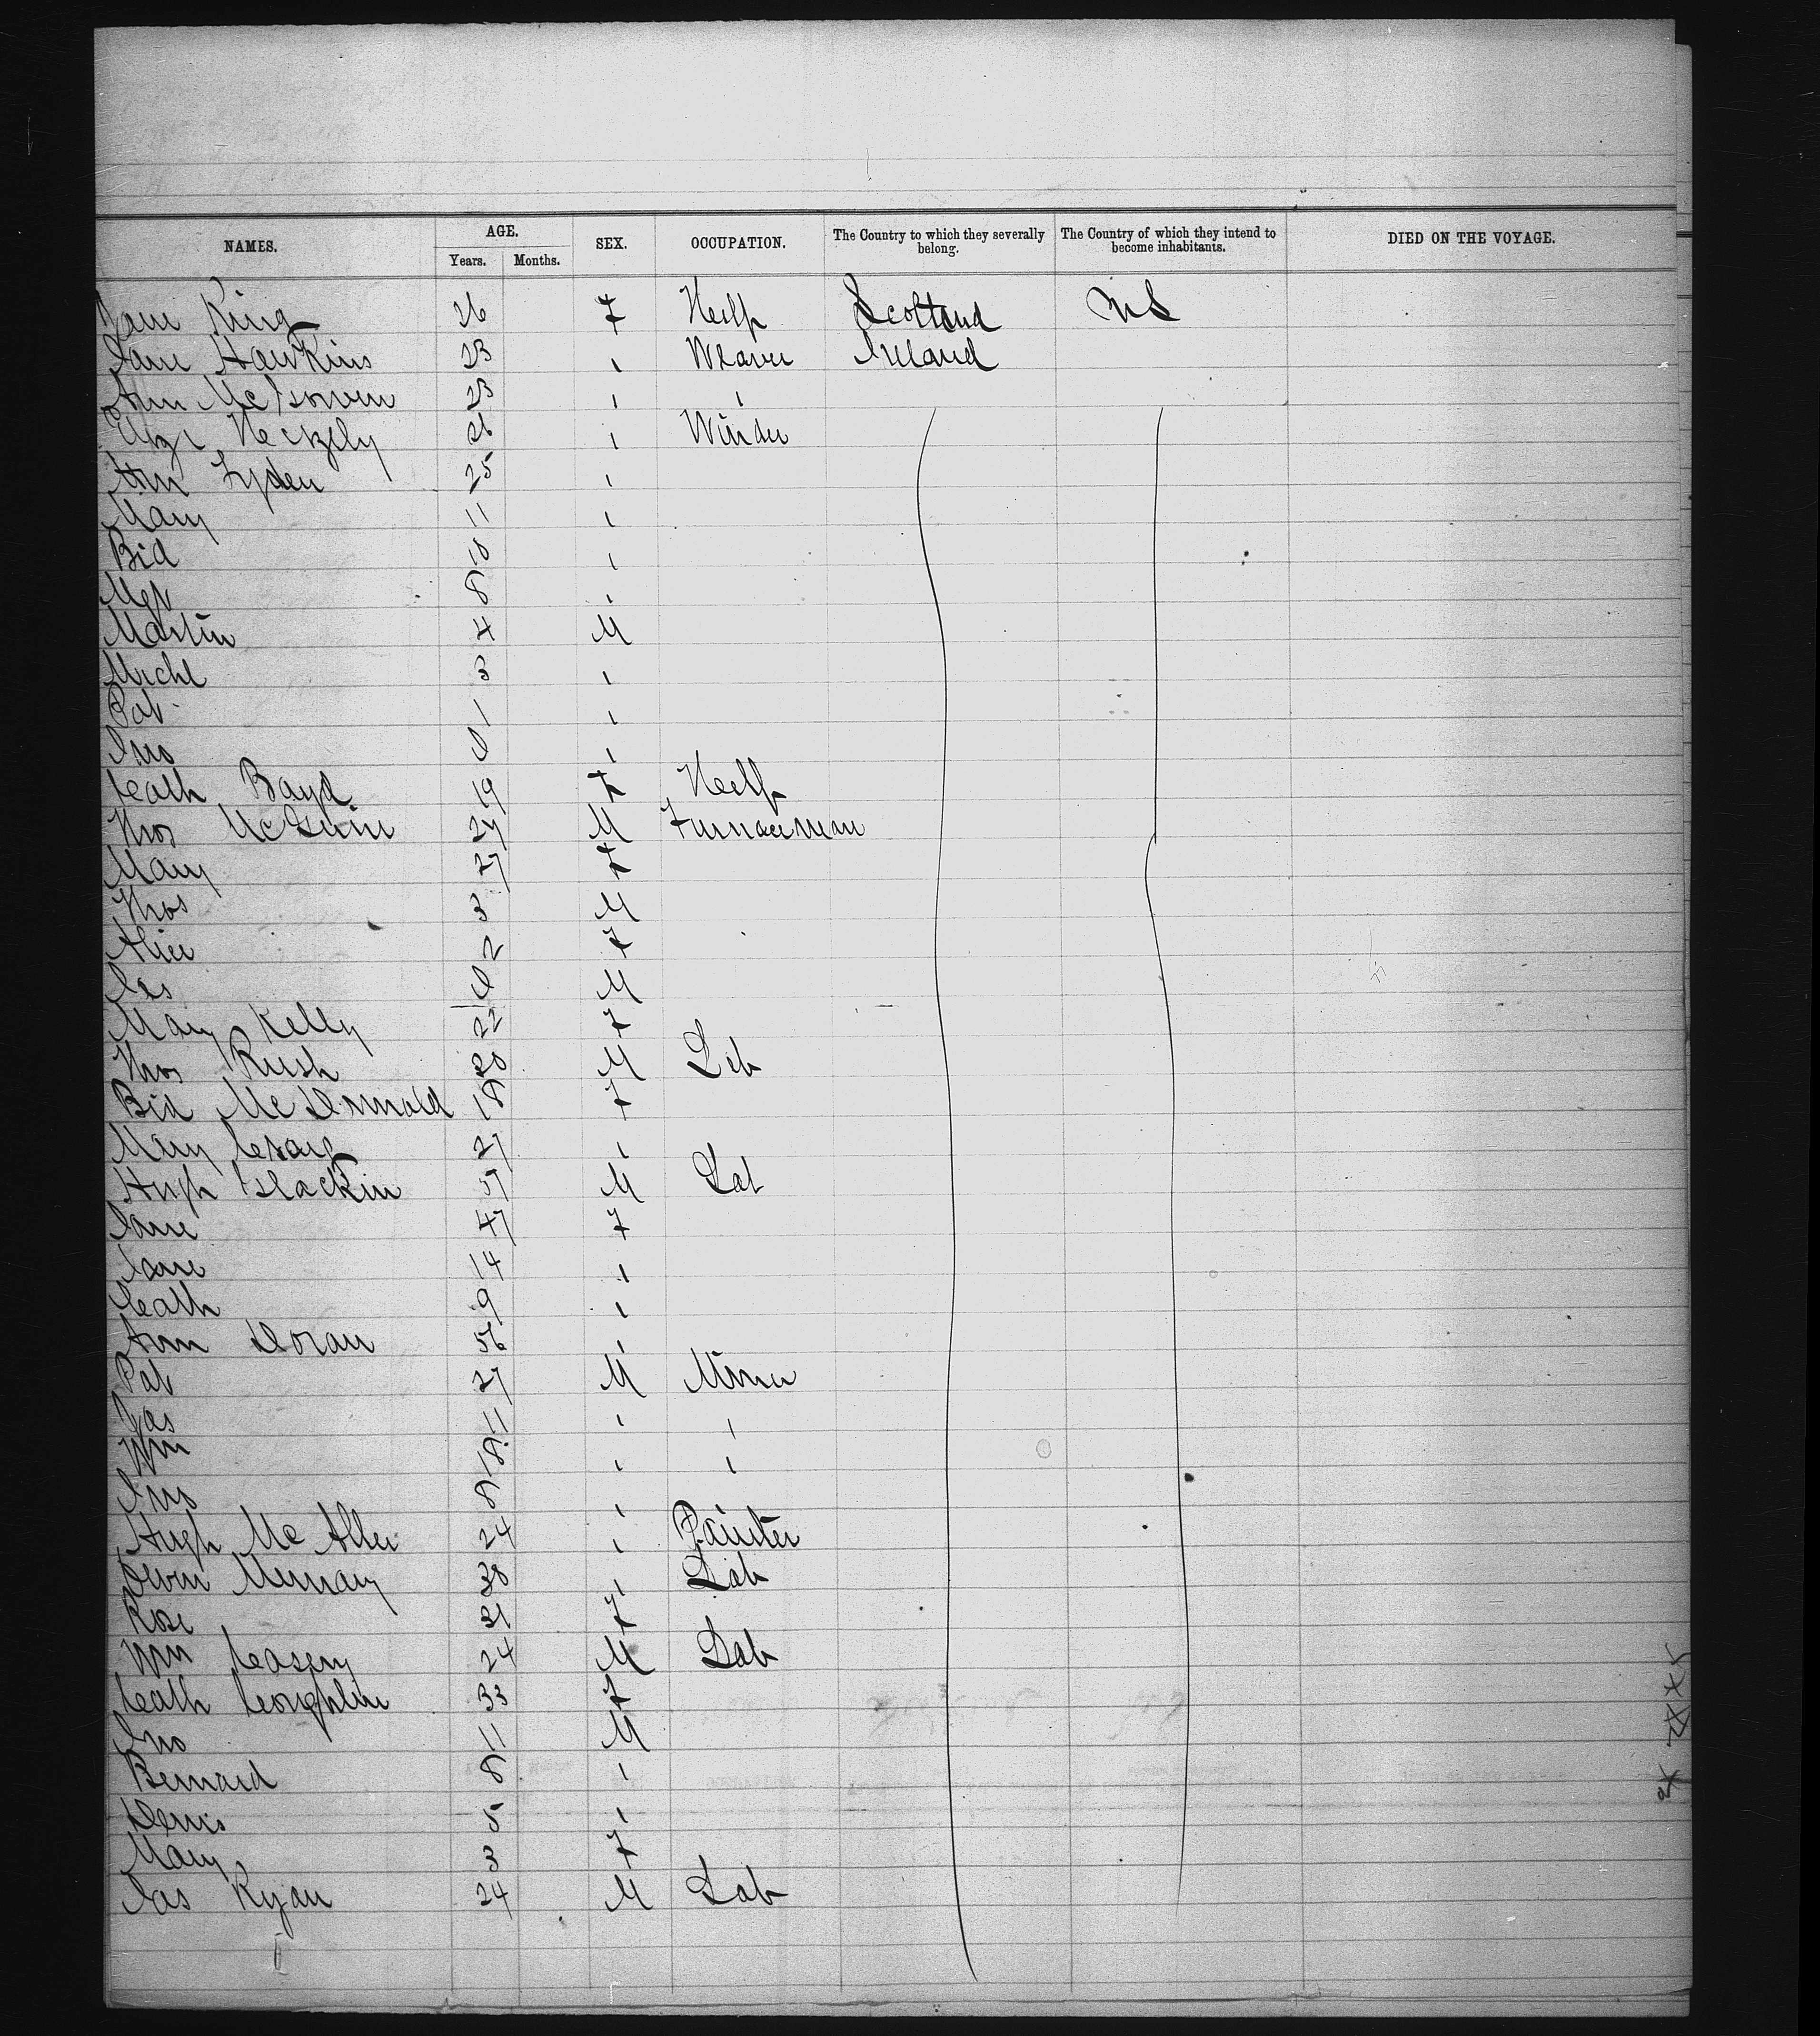 NAMES. AGE. Years. Months. SEX. OCCUPATION. The Country to which they severally belong. The Country of which they intend to become inhabitants. DIED ON THE VOYAGE.
Jane King 26 F Help Scotland US
Jane Hawkins 23 " Weaver Ireland
Ann McGowen 23 " "
Eliza 26 " Winder
Ann Lyden 25 "
Mary 11 "
Bid 10 "
Mgt 8 "
Martin 4 M
Michl 3 "
Pat 1 "
Jno 0 "
Cath Boyd 19 F Help
Thos McGuire 27 M Furnaceman
Mary 27 F
Thos 3 M
Alice 2 F
Jas 0 M
Mary Kelly 22 F
Thos Rush 20 M Lab
Bid McDonnald 18 F
Mary Craig 27 "
Hugh Glackin 57 M Lab
Jane 47 F
Jane 14 "
Cath 9 "
Ann Doran 56 "
Pat 27 M Miner
Jas 11 " "
Wm 18 " "
Jno 8 "
Hugh McAllee 24 " Painter
Owen Murray 38 " Lab
Rose 31 F
Wm Casery 24 M Lab
Cath Coughlin 33 F
Jno 11 M
Bernard 8 "
Denis 5 "
Mary 3 F
Jas Ryan 24 M Lab